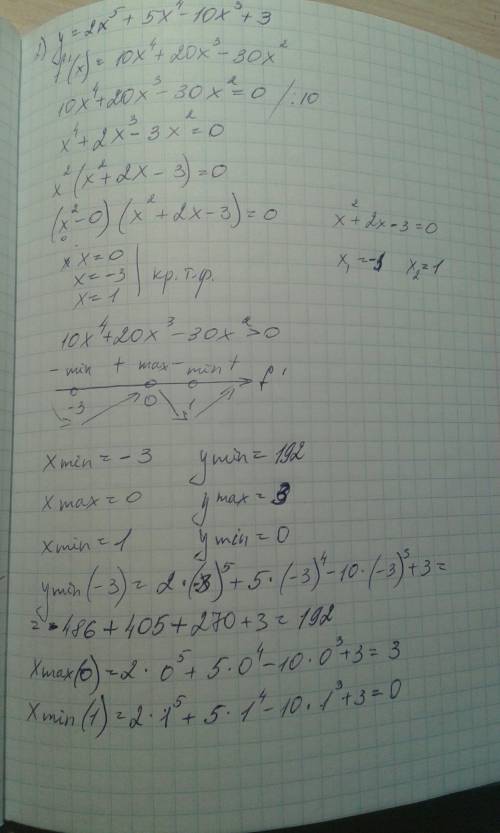 1) y = 2x⁵ + 5x⁴ - 10x³ + 3
f'(x) = 10x⁴ + 20x³ - 30x²
10x⁴ + 20x³ - 30x² = 0 /:10
x⁴ + 2x³ - 3x² = 0
x²(x² + 2x - 3) = 0
(x² - 0)(x² + 2x - 3) = 0
x² + 2x - 3 = 0
x = 0
x = -3 кр.т.ф.
x = 1
x₁ = -3 x₂ = 1
10x⁴ + 20x³ - 30x² > 0
- min + max - min + f'
-3 0 1
x min = -3 y min = 192
x max = 0 y max = 3
x min = 1 y min = 0
y min (-3) = 2·(-3)⁵ + 5·(-3)⁴ - 10·(-3)³ + 3 =
= -486 + 405 + 270 + 3 = 192
x max (0) = 2·0⁵ + 5·0⁴ - 10·0³ + 3 = 3
x min (1) = 2·1⁵ + 5·1⁴ - 10·1³ + 3 = 0